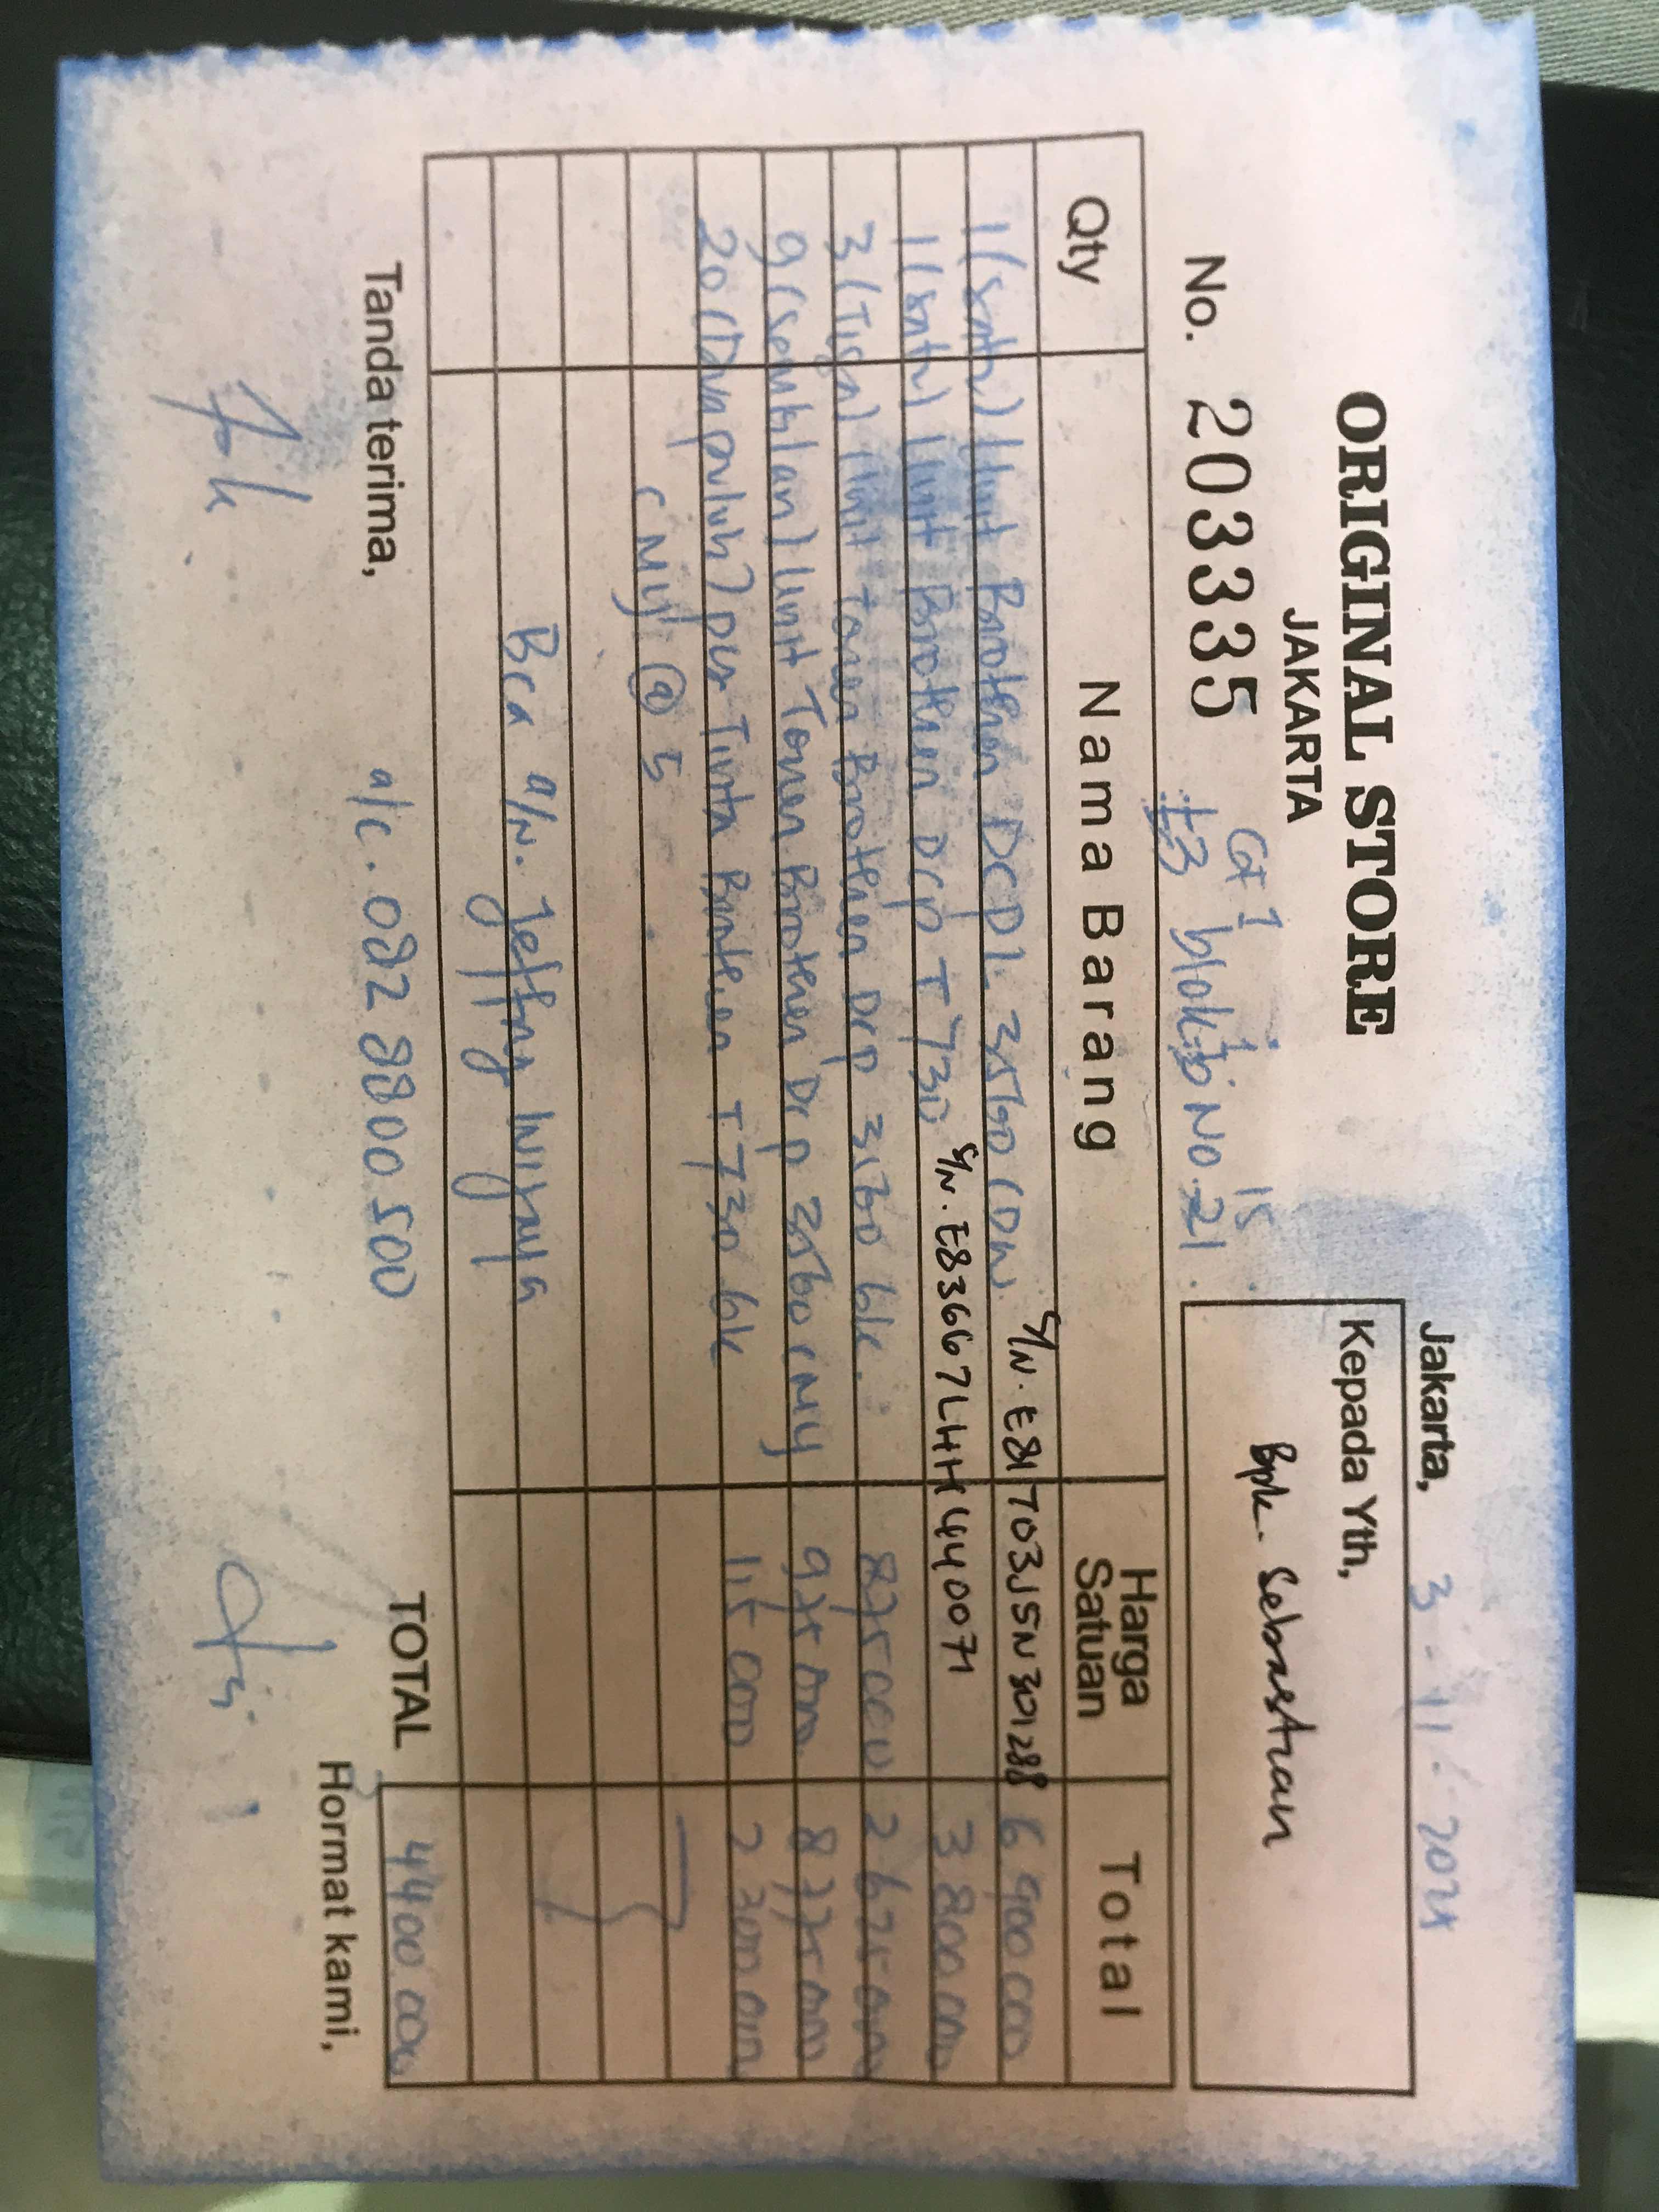 ORIGINAL STORE
JAKARTA
Jakarta, 3-11-2024
Kepada Yth,
Bpk. Sebastian
Gf 1 15
No. 203335 blok No. 21
Qty Nama Barang Harga Satuan Total
1 (satu) Unit Brother DCPL 3560 CDW. S/N. E81703J5N301288 6 900 000
1 (satu) Unit Brother Dcp T 730 S/N. E83667LHH440071 3 800 000
3 (Tiga) Unit Toner Brother Dcp 3160 blk. 875 000 2 625 000
9 (sembilan) Unit Toner Brother Dcp 3560 CMY 975 000 8 775 000
20 (Dua puluh) pcs Tinta Brother T 730 blk 115 000 2 300 000
CMY @ 5
Bca a/n. Jeffry Wijaya
TOTAL
Tanda terima, a/c. 082 8800 500 Hormat kami,